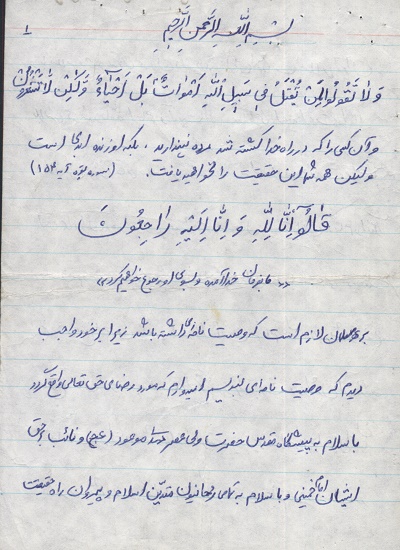 ۱
بسم الله الرحمن الرحیم
وَلا تَقُولُوا لِمَنْ يُقْتَلُ فِی سَبِيلِ اللهِ اَمْواتٌ بَلْ اَحْیاءٌ وَلکِنْ لا تَشْعُرُونَ
و آن کسی را که در راه خدا کشته شد مرده نپندارید، بلکه او زنده ابدی است
و لیکن همه شما این حقیقت را نخواهید یافت. (سوره بقره آیه ۱۵۴)
قالُوا اِنّا لِلّهِ وَ اِنّا اِلَیْهِ راجِعُونَ
«ما بفرمان خدا آمده و بسوی او رجوع خواهیم کرد»
بر هر مسلمان لازم است که وصیت نامه‌ای داشته باشد زیرا بر خود واجب
دیدم که وصیت نامه‌ای بنویسم امیدوارم که مورد رضای حق تعالی واقع گردد
با سلام به پیشگاه مقدس حضرت ولی عصر موعود (عج) و نائب بر حق
ایشان امام خمینی و با سلام به تمامی روحانیون متدین اسلام و پیروان راه حقیقت